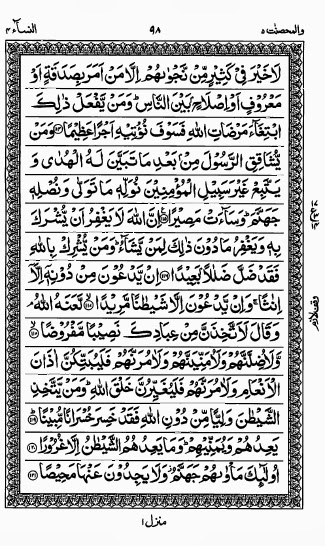 والمحصنت ٥
٩٨
النسآء ٤
لَاخَيْرَ فِيْ كَثِيْرٍ مِّنْ نَّجْوٰىهُمْ اِلَّا مَنْ اَمَرَ بِصَدَقَةٍ اَوْ
مَعْرُوْفٍ اَوْ اِصْلَاحٍۭ بَيْنَ النَّاسِ ؕ وَمَنْ يَّفْعَلْ ذٰلِكَ
ابْتِغَآءَ مَرْضَاتِ اللّٰهِ فَسَوْفَ نُؤْتِيْهِ اَجْرًا عَظِيْمًا ﴿۱۱۴﴾ وَمَنْ
يُّشَاقِقِ الرَّسُوْلَ مِنْۢ بَعْدِ مَا تَبَيَّنَ لَهُ الْهُدٰى وَ
يَتَّبِعْ غَيْرَ سَبِيْلِ الْمُؤْمِنِيْنَ نُوَلِّهٖ مَا تَوَلّٰى وَنُصْلِهٖ
جَهَنَّمَ ؕ وَسَآءَتْ مَصِيْرًا ﴿۱۱۵﴾ اِنَّ اللّٰهَ لَا يَغْفِرُ اَنْ يُّشْرَكَ
بِهٖ وَيَغْفِرُ مَا دُوْنَ ذٰلِكَ لِمَنْ يَّشَآءُ ؕ وَمَنْ يُّشْرِكْ بِاللّٰهِ
فَقَدْ ضَلَّ ضَلٰلًۢا بَعِيْدًا ﴿۱۱۶﴾ اِنْ يَّدْعُوْنَ مِنْ دُوْنِهٖۤ اِلَّاۤ
اِنٰثًا ۚ وَاِنْ يَّدْعُوْنَ اِلَّا شَيْطٰنًا مَّرِيْدًا ﴿۱۱۷﴾ لَّعَنَهُ اللّٰهُ ۘ
وَقَالَ لَاَتَّخِذَنَّ مِنْ عِبَادِكَ نَصِيْبًا مَّفْرُوْضًا ﴿۱۱۸﴾
وَّلَاُضِلَّنَّهُمْ وَلَاُمَنِّيَنَّهُمْ وَلَاٰمُرَنَّهُمْ فَلَيُبَتِّكُنَّ اٰذَانَ
الْاَنْعَامِ وَلَاٰمُرَنَّهُمْ فَلَيُغَيِّرُنَّ خَلْقَ اللّٰهِ ؕ وَمَنْ يَّتَّخِذِ
الشَّيْطٰنَ وَلِيًّا مِّنْ دُوْنِ اللّٰهِ فَقَدْ خَسِرَ خُسْرَانًا مُّبِيْنًا ﴿۱۱۹﴾
يَعِدُهُمْ وَيُمَنِّيْهِمْ ؕ وَمَا يَعِدُهُمُ الشَّيْطٰنُ اِلَّا غُرُوْرًا ﴿۱۲۰﴾
اُولٰٓئِكَ مَاْوٰىهُمْ جَهَنَّمُ ؗ وَلَا يَجِدُوْنَ عَنْهَا مَحِيْصًا ﴿۱۲۱﴾
وقف لازم
منزل ١